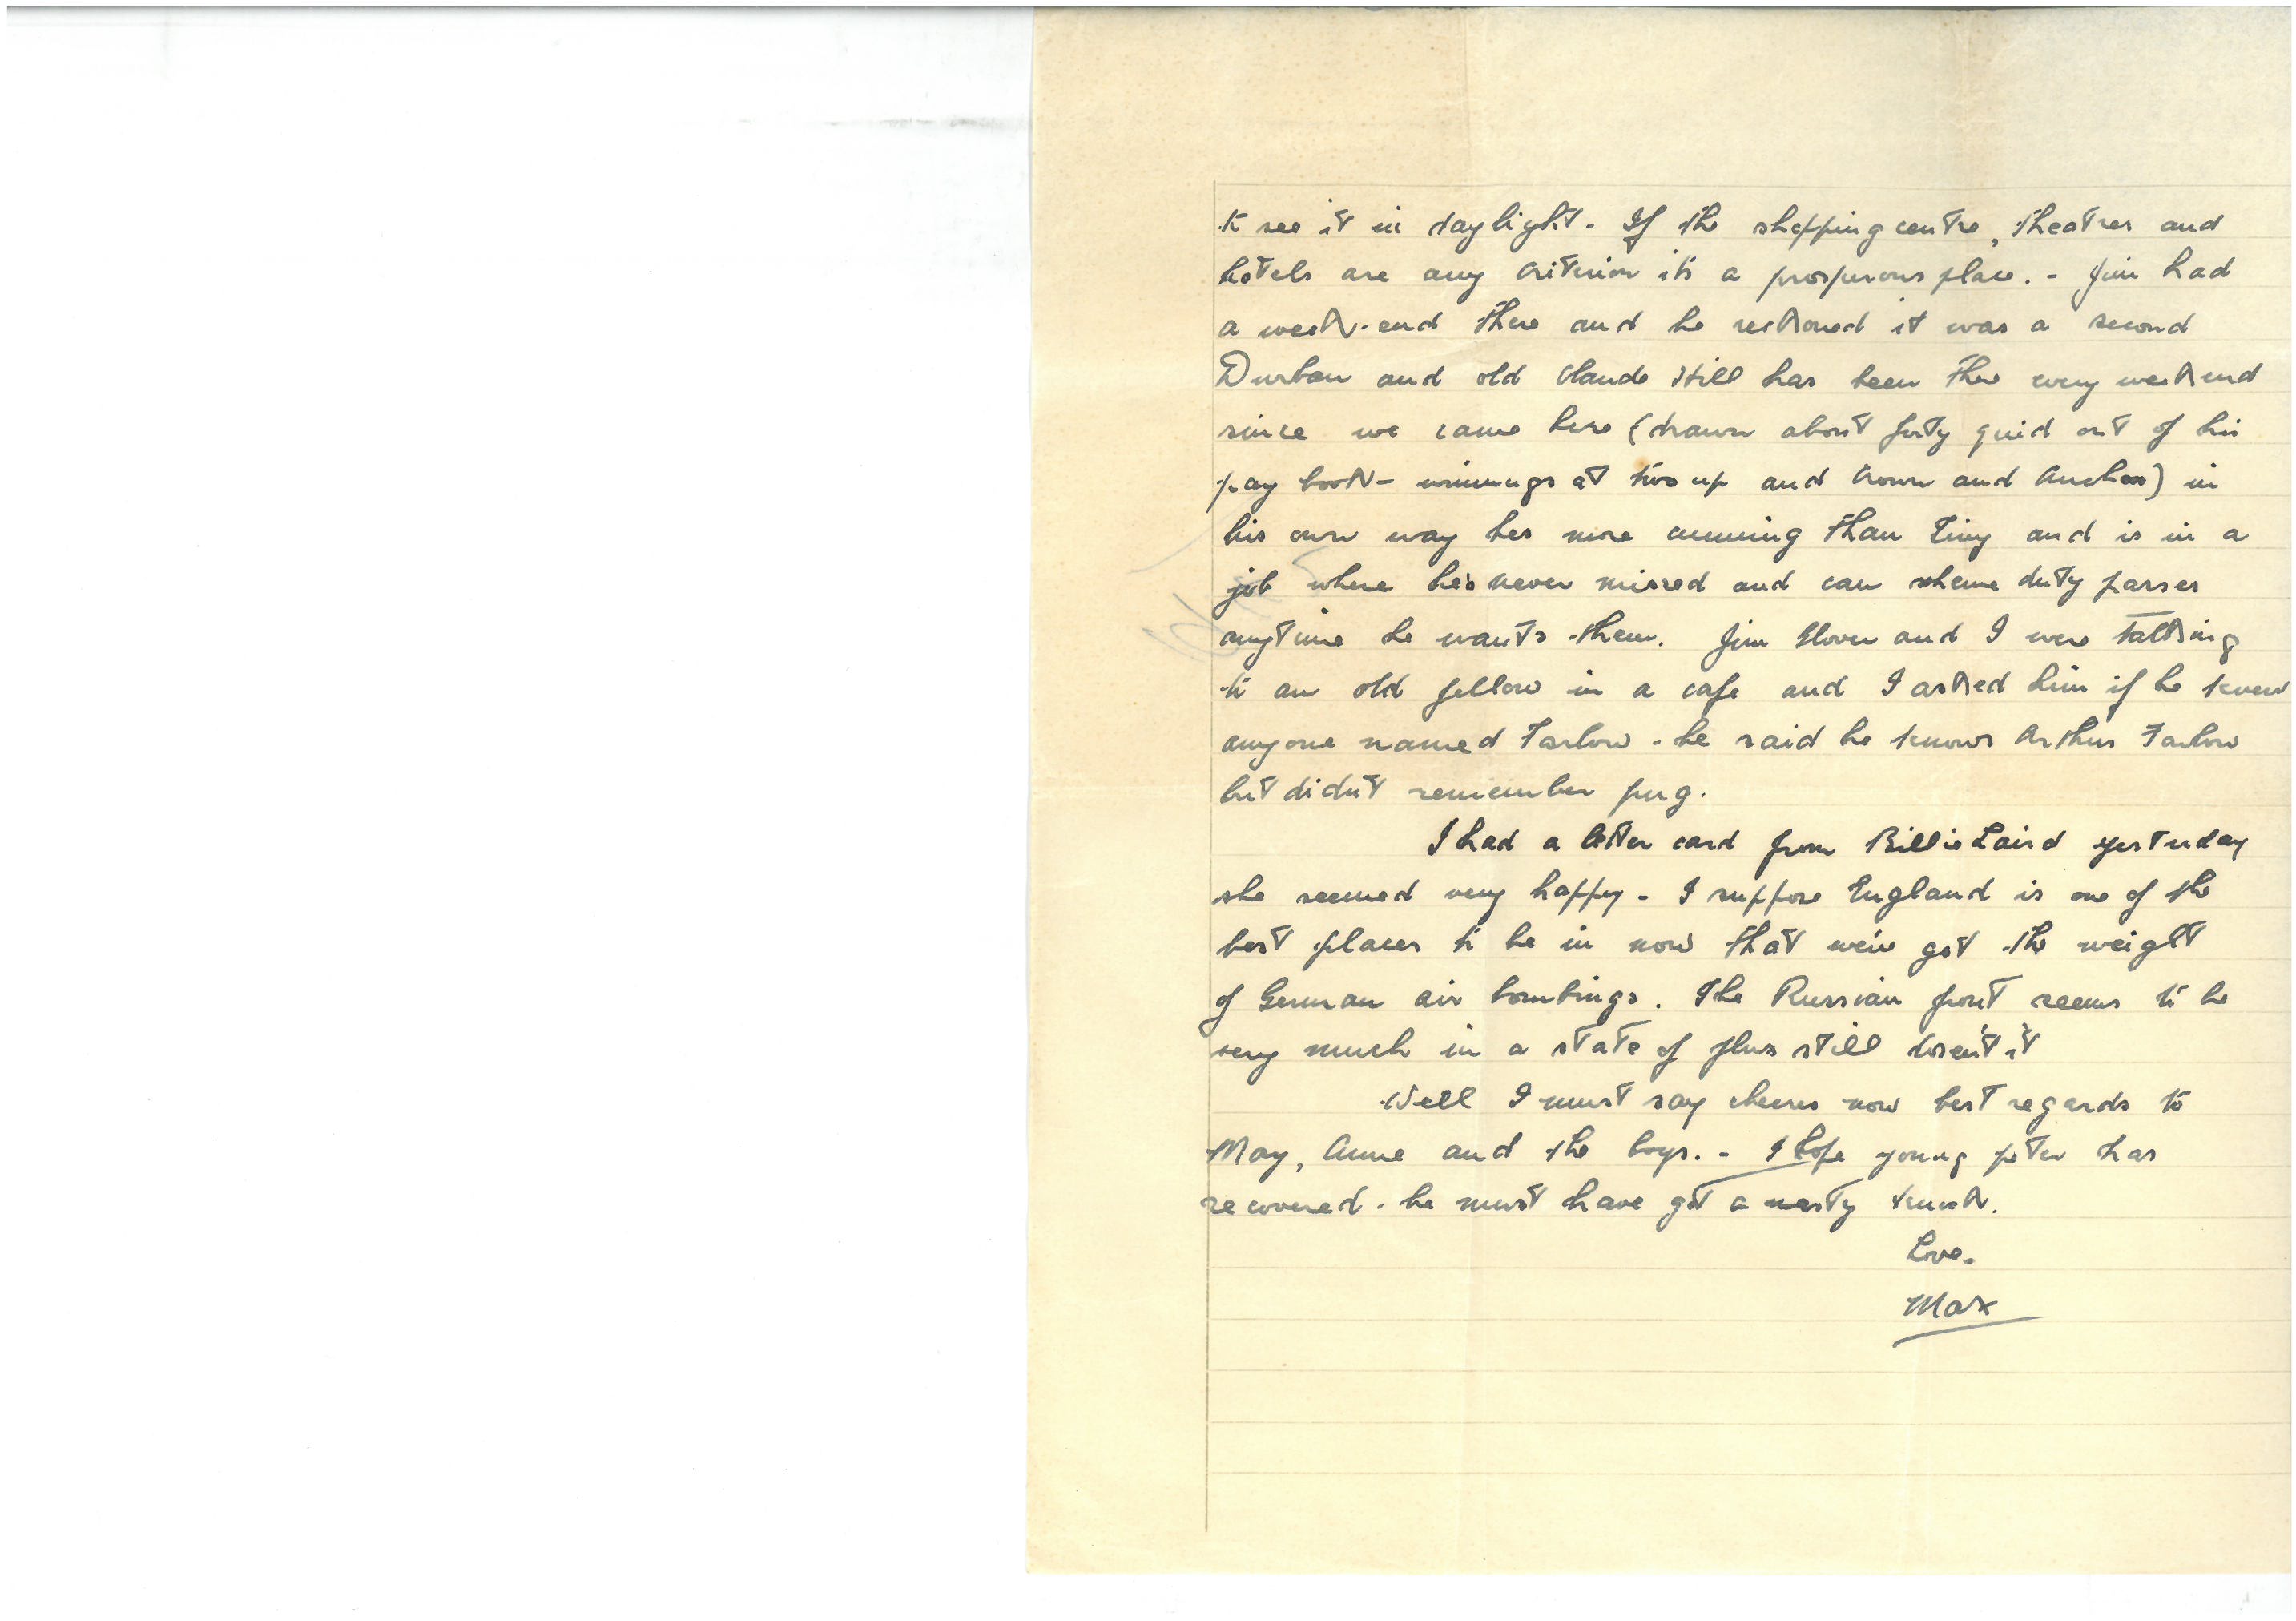 to see it in daylight. If the shopping centre, theatres and
hotels are any criterion it's a prosperous place. - Jim had
a week-end there and he reckoned it was a second
Durban and old Claude Still has been there every weekend
since we came here (drawn about forty quid out of his
pay book - winnings at two up and Crown and Anchor) in
his own way hes more cunning than Tiny and is in a
job where he's never missed and can scheme duty passes
anytime he wants them. Jim Glover and I were talking
to an old fellow in a cafe and I asked him if he knew
anyone named Tarlow - he said he knows Arthur Tarlow
but didn't remember pug.
I had a letter card from Billie Laird yesterday
she seemed very happy - I suppose England is one of the
best places to be in now that we've got the weight
of German air bombings. The Russian front seems to be
very much in a state of flux still doesn't it
Well I must say cheers now best regards to
May, Anne and the boys. - I hope young peter has
recovered - he must have got a nasty knock.
Love.
Max